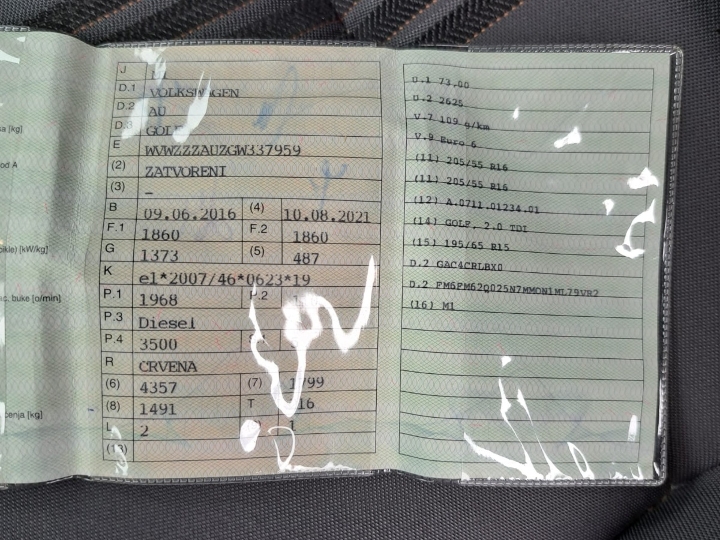 a [kg]
od A
oikle) [kW/kg]
ac. buke [o/min]
cenja [kg]
J
D.1 VOLKSWAGEN
D.2 AU
D.3 GOLF
E WVWZZZAUZGW337959
(2) ZATVORENI
(3) –
B 09.06.2016 (4) 10.08.2021
F.1 1860 F.2 1860
G 1373 (5) 487
K e1*2007/46*0623*19
P.1 1968 P.2
P.3 Diesel
P.4 3500
R CRVENA
(6) 4357 (7) 1799
(8) 1491 T 16
L 2 1
(13)
U.1 73.00
U.2 2625
V.7 109 g/km
V.9 Euro 6
(11) 205/55 R16
(11) 205/55 R16
(12) A.0711.01234.01
(14) GOLF, 2.0 TDI
(15) 195/65 R15
D.2 GAC4CRLBX0
D.2 FM6FM62Q025N7MMON1ML79VR2
(16) M1